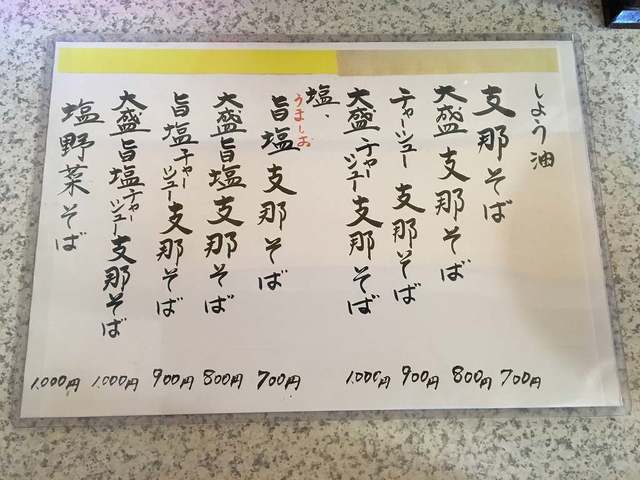 しょう油
支那そば 700円
大盛支那そば 800円
チャーシュー支那そば 900円
大盛チャーシュー支那そば 1,000円
塩、
うましお
旨塩支那そば 700円
大盛旨塩支那そば 800円
旨塩チャーシュー支那そば 900円
大盛旨塩チャーシュー支那そば 1,000円
塩野菜そば 1,000円